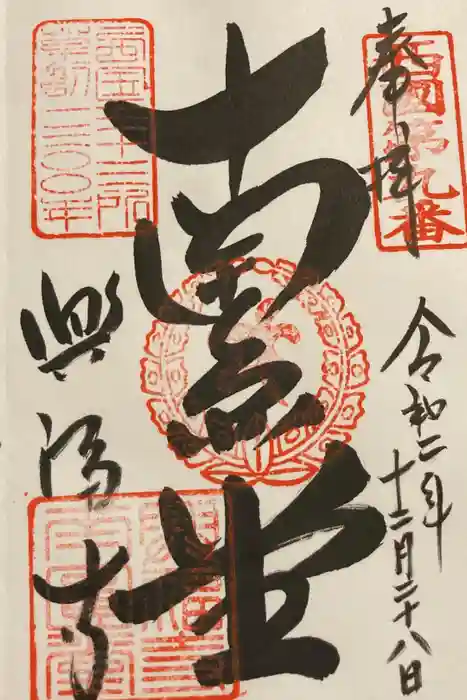 西国第九番
奉拝
令和二年
十二月二十八日
南圓堂
興福寺
西国三十三所
草創一三〇〇年